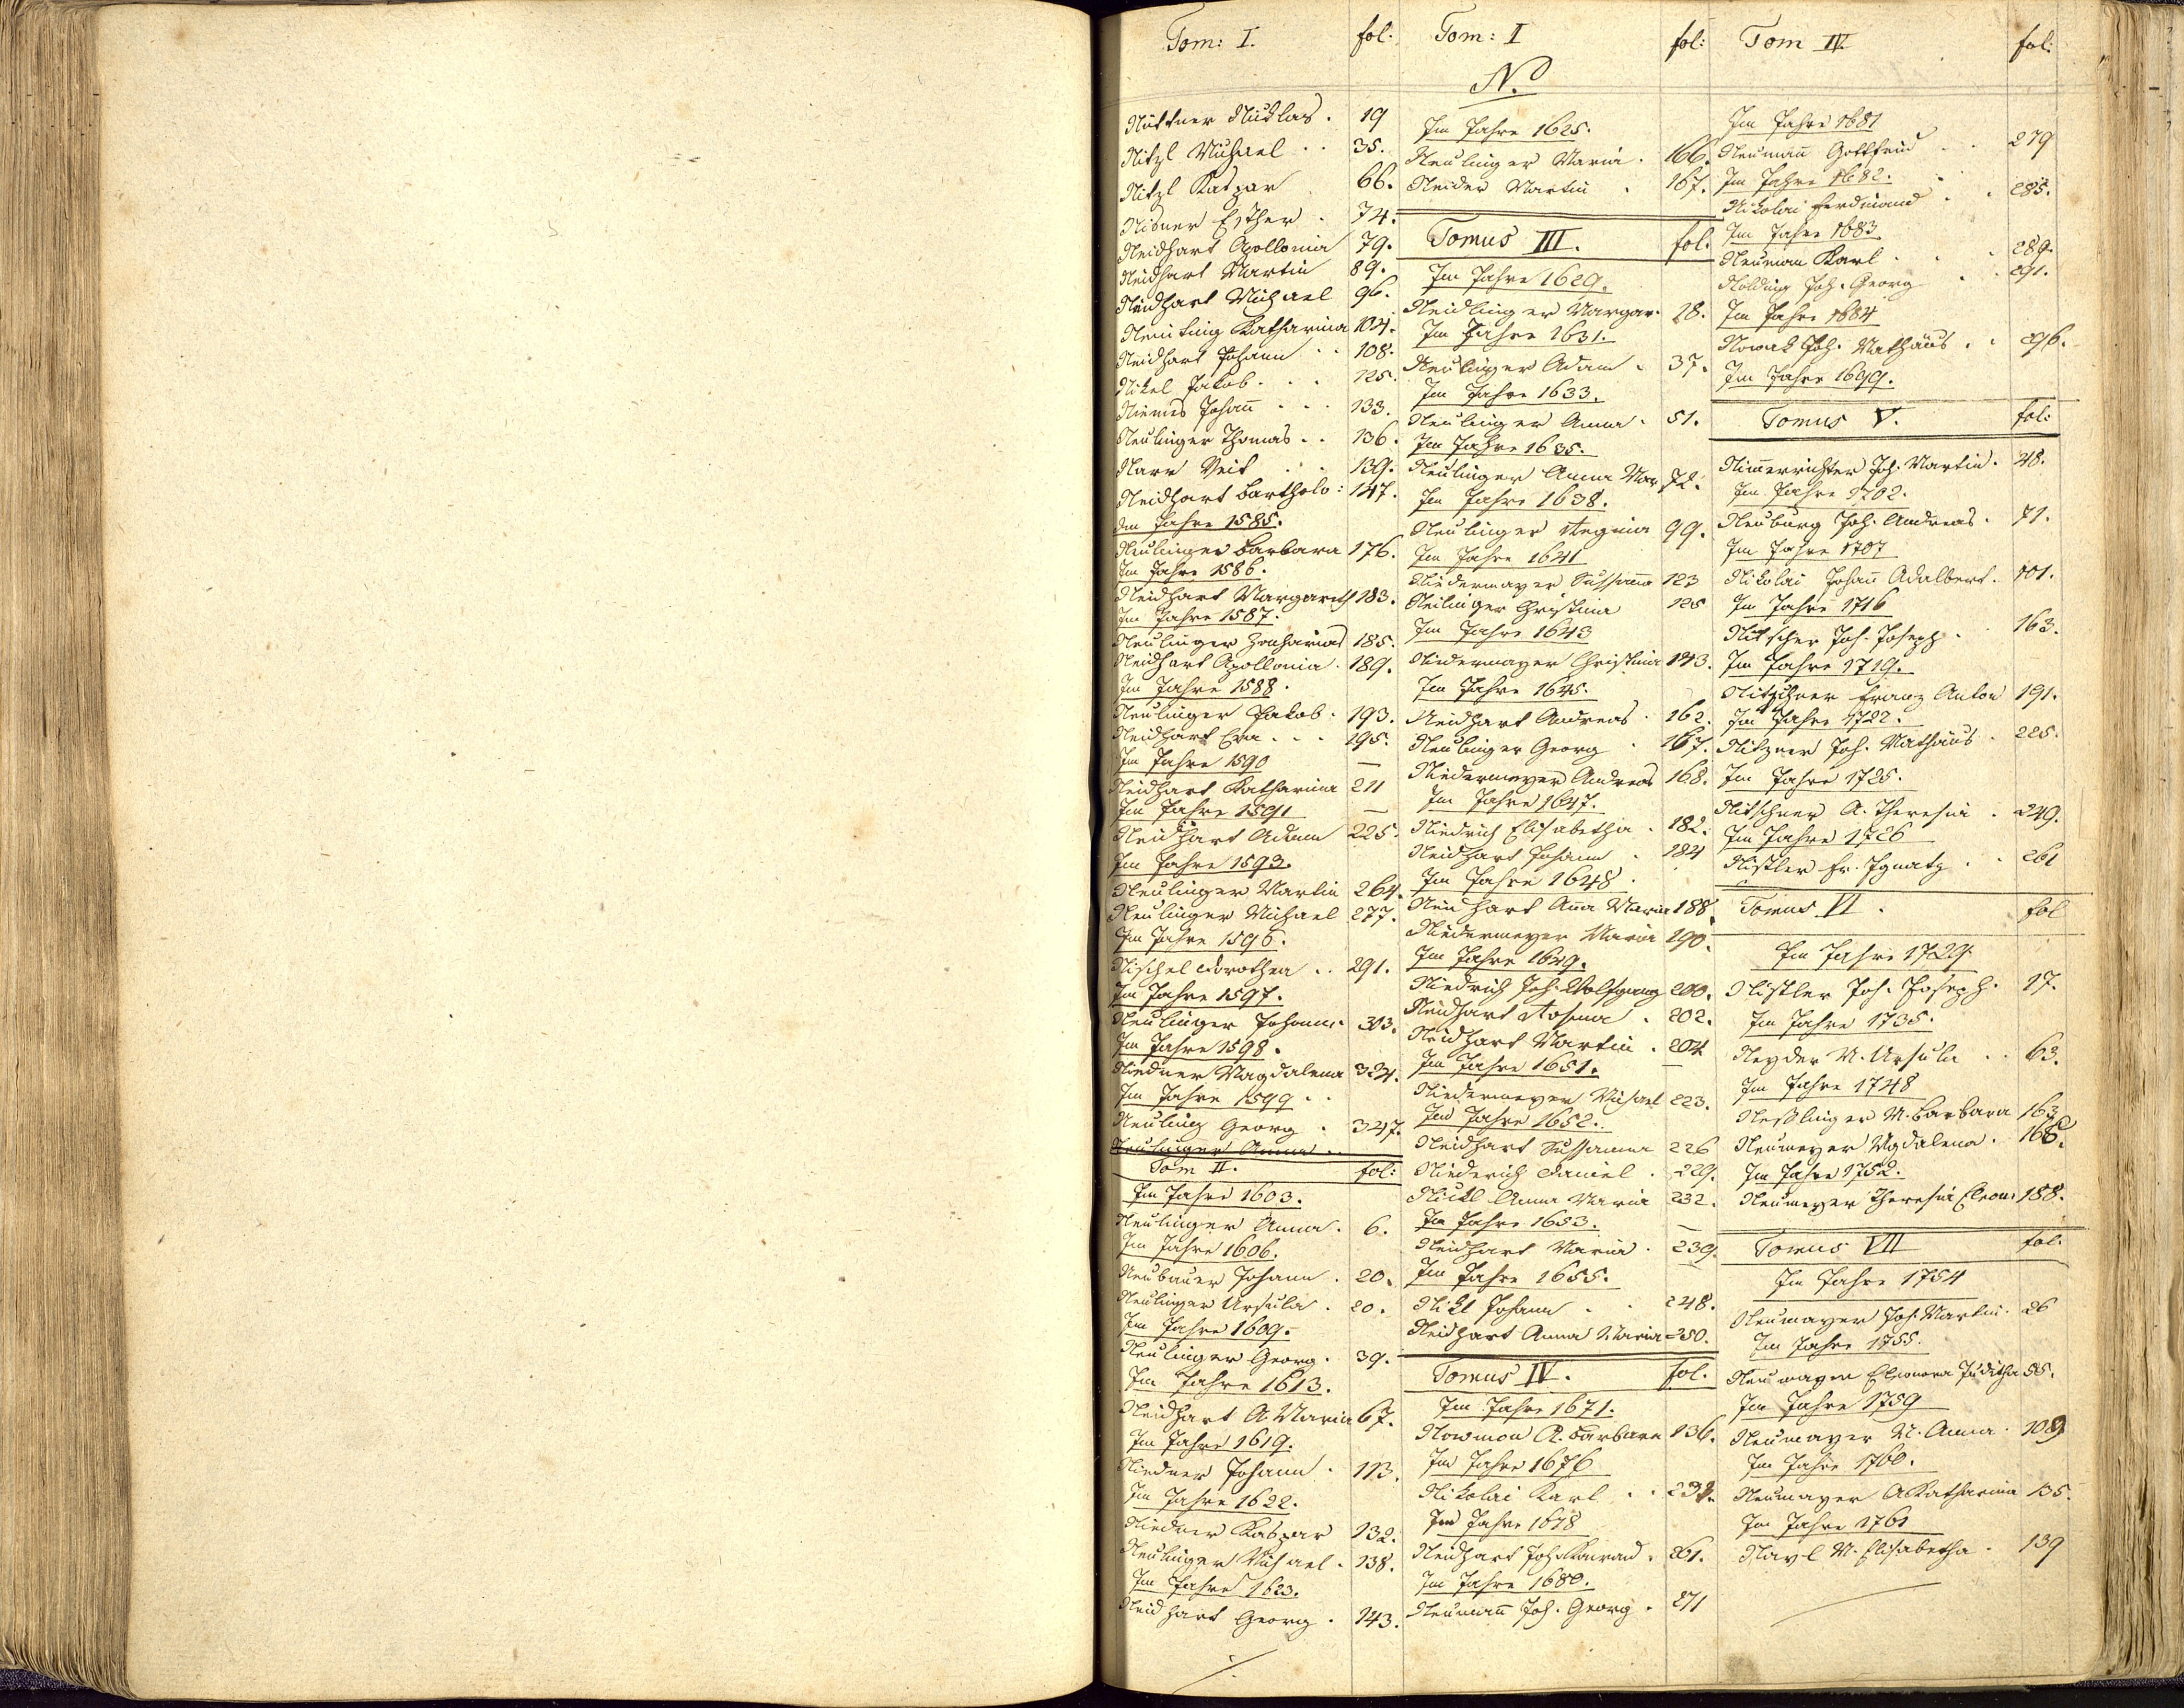 Tom: I. fol:
Nüttner Nicklas . 19
Nitzl Michael . . 35.
Nitzl Kaspar 66.
Nisner Esther . 74.
Neidhart Apollonia 79.
Neidhart Martin 89.
Neidhart Michael 96.
Katharina 104.
Neidhart Johann . . 108.
Nikel Jakob . . . 125.
Niemes Johan̅ . . . 133.
Neulinger Thomas . . 136.
Narr Veit . . 139.
Neidhart Bartholo: 147.
Im Jahre 1585.
Neulinger Barbara 176.
Im Jahre 1586.
Neidhart Margareth 183.
Im Jahre 1587.
Neulinger Zacharias 185.
Neidhart Apollonia . 189.
Im Jahre 1588.
Neulinger Jakob . 193.
Neidhart Eva . . . 195.
Im Jahre 1590
Neidhart Katharina 211
Im Jahre 1591
Neidhart Adam 225.
Im Jahre 1593.
Neulinger Martin 264.
Neulinger Michael 277.
Im Jahre 1596.
Nischel Dorothea . . 291.
Im Jahre 1597.
Neulinger Johann . 303.
Im Jahre 1598.
Niedner Magdalena 324.
Im Jahre 1599 . .
Neuling Georg . 347.
Neulinger Anna . .
Tom II. fol:
Im Jahre 1603.
Neulinger Anna . 6.
Im Jahre 1606.
Neubauer Johann . 20.
Neulinger Ursula . 20.
Im Jahre 1609.
Neulinger Georg . 39.
Im Jahre 1613.
Neidhart A Maria 67.
Im Jahre 1619.
Niedner Johann . 113.
Im Jahre 1622.
Niedner Kaspar 132.
Neulinger Michael . 138.
Im Jahre 1623.
Neidhart Georg . 143.
Tom: I fol:
N.
Im Jahre 1625.
Neulinger Maria . 166.
Neider Martin . 167.
Tomus III. fol.
Im Jahre 1629.
Neidlinger Margar. 28.
Im Jahre 1631.
Neulinger Adam . 37.
Im Jahre 1633.
Neulinger Anna . 51.
Im Jahre 1635.
Neulinger Anna Mar 72.
Im Jahre 1638.
Neulinger Regina 99.
Im Jahre 1641
Niedermayer Sussan̅a 123
Neilinger Christina 125
Im Jahre 1643
Niedermayer Christina 143.
Im Jahre 1645.
Neidhart Andreas . 162.
Neulinger Georg . 167.
Niedermeyer Andreas 168.
Im Jahre 1647.
Niedrich Elisabetha . 182.
Neidhart Johann . 184
Im Jahre 1648.
Neidhart An̅a Maria 188.
Niedermeyer Maria 190.
Im Jahre 1649.
Niedrich Joh. Wolfgang 200.
Neidhart Rosina . 202.
Neidhart Martin . 204
Im Jahre 1651.
Niedermeyer Michael 223.
Im Jahre 1652.
Neidhart Sussanna 226
Niederich Daniel . 229.
Nickl Anna Maria 232.
Im Jahre 1653.
Neidhart Maria . 239.
Im Jahre 1655.
Nikl Johann . . 248.
Neidhart Anna Maria 250.
Tomus IV. fol.
Im Jahre 1671.
Barbara 136.
Im Jahre 1676
Nikolai Karl . .
Im Jahre 1678
Neidhart Joh. Konrad . 261.
Im Jahre 1680.
Neuman̅ Joh. Georg . 271
Tom IV. fol:
Im Jahre 1681
Neuman̅ Gottfried . . 279
Im Jahre 1682.
Nikolai Ferdinand . . 285.
Im Jahre 1683
Neuman Karl . . . 289.
Nolding Joh. Georg . . 291.
Im Jahre 1684
Nowak Joh. Mathäus . . 296.
Im Jahre 1699.
Tomus V. fol:
Nim̅errichter Joh. Martin . 48.
Im Jahre 1702.
Neuburg Joh. Andreas . 71.
Im Jahre 1707
Nikolai Johan̅ Adalbert . 101.
Im Jahre 1716
Nitscher Joh. Joseph . 163.
Im Jahre 1719.
Nitschner Franz Anton 191.
Im Jahre 1722.
Nitzner Joh. Mathäus . 225.
Im Jahre 1725.
Nitschner A. Theresia . 249.
Im Jahre 1726
Nistler Fr. Ignatz . . 261
Tomus VI. fol
Im Jahre 1729
Nistler Joh. Joseph . 17.
Im Jahre 1735.
Neyder M. Ursula . . 63.
Im Jahre 1748
Neßlinger M. Barbara 163
Neumeyer Magdalena . 168.
Im Jahre 1752.
Neumeyer Theresia Eleon. 188.
Tomus VII fol.
Im Jahre 1754
Neumayer Joh. Martin . 26
Im Jahre 1755.
Neumayer Eleonora Juditha 55.
Im Jahre 1759
Neumayer M. Anna . 109
Im Jahre 1760.
Neumayer A Katharina 135.
Im Jahre 1761
Navl M. Elisabetha . 139